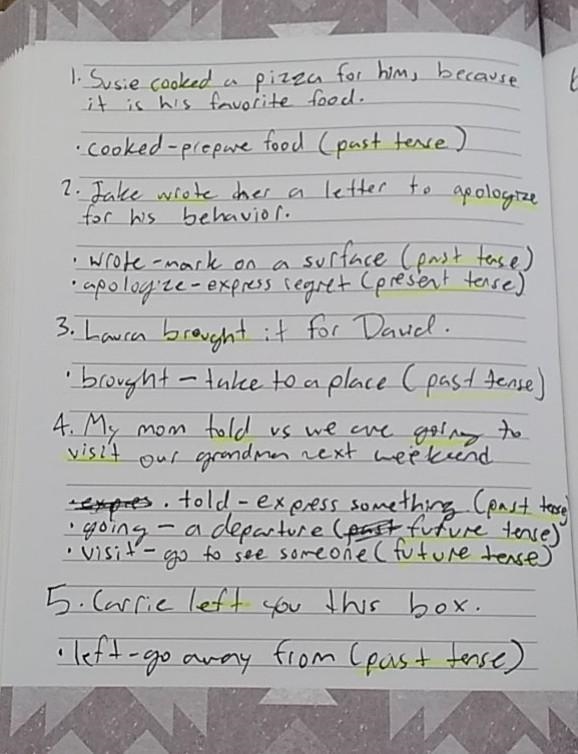 1. Susie cooked a pizza for him, because
it is his favorite food.
• cooked - prepare food (past tense)
2. Jake wrote her a letter to apologize
for his behavior.
• wrote - mark on a surface (past tense)
• apologize - express regret (present tense)
3. Laura brought it for David.
• brought - take to a place (past tense)
4. My mom told us we are going to
visit our grandma next weekend
expres. • told - express something (past tense)
• going - a departure (past future tense)
• visit - go to see someone (future tense)
5. Carrie left you this box.
• left - go away from (past tense)